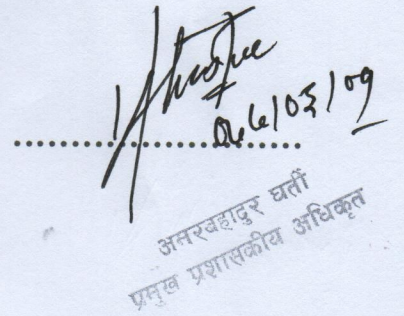 ०६६/०३/०९
अमरबहादुर घर्ती
प्रमुख प्रशासकीय अधिकृत